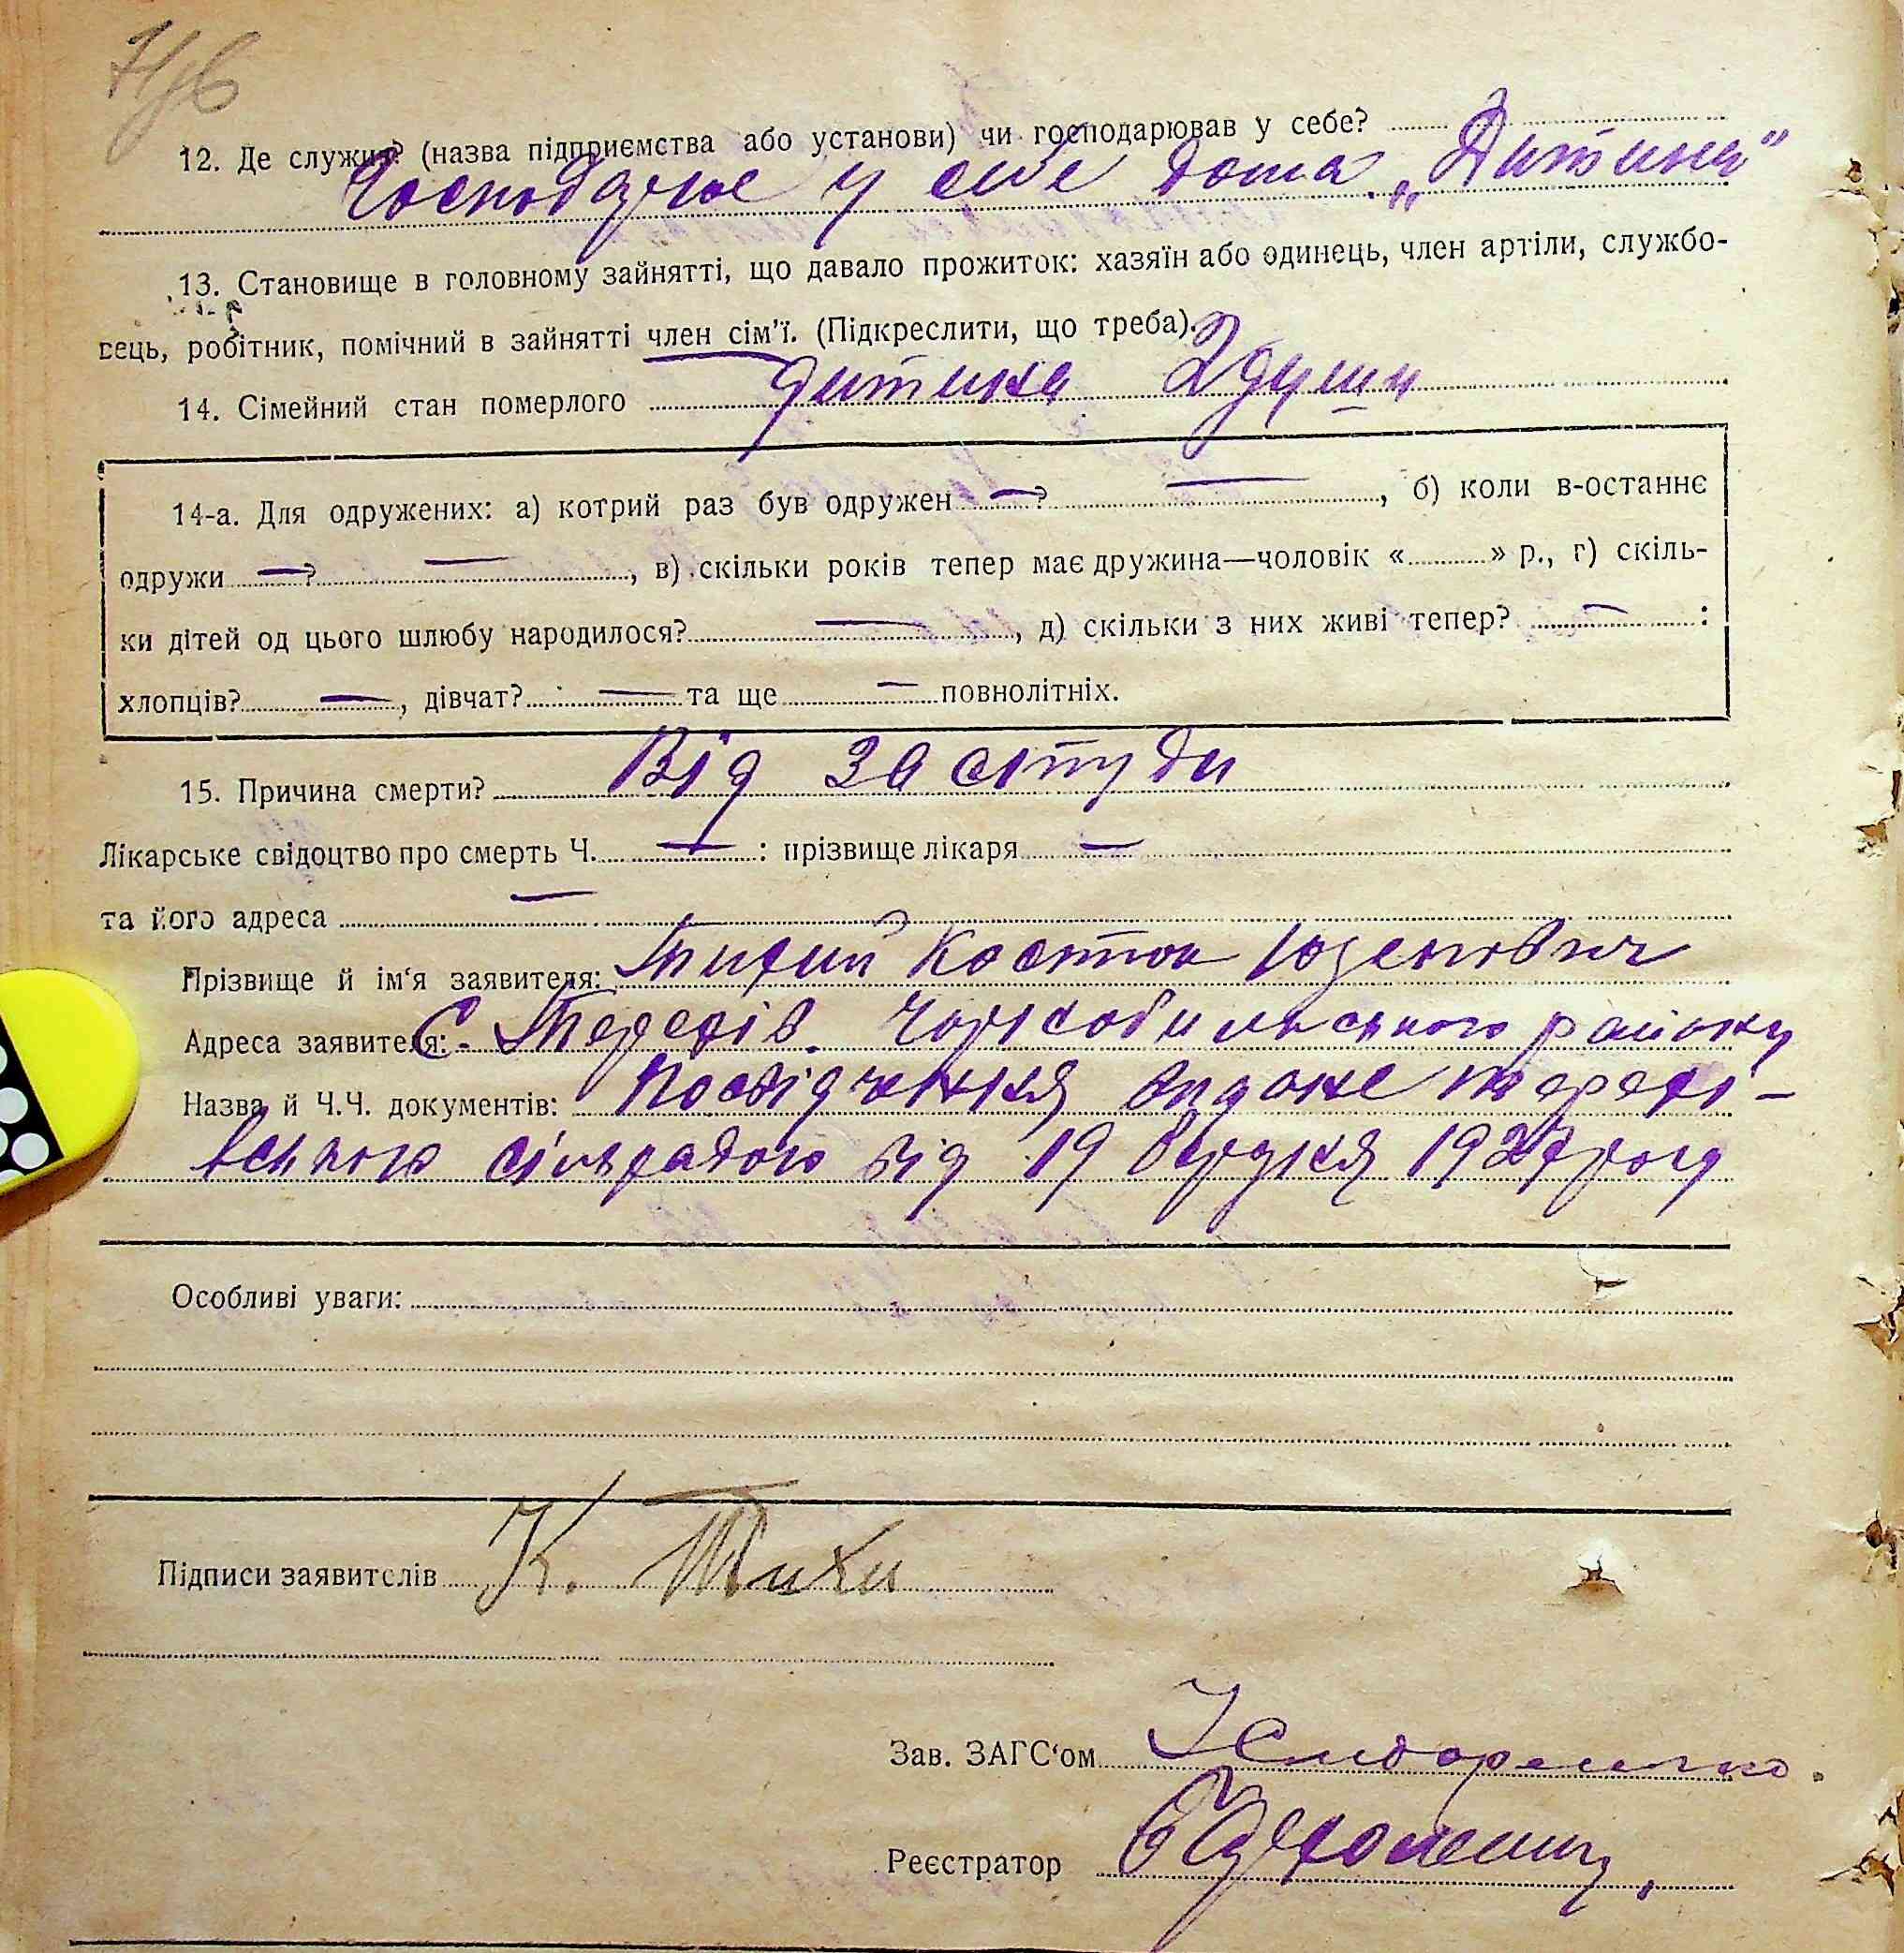 12. Де служив? (назва підприємства або установи) чи господарював у себе?
Господарює у себе дома „Дитина"
13. Становище в головному зайнятті, що давало прожиток: хазяїн або одинець, член артіли, службо-
вець, робітник, помічний в зайнятті член сім'ї. (Підкреслити, що треба).
14. Сімейний стан померлого дитина 2 души
14-а. Для одружених: а) котрий раз був одружен — ? —, б) коли в-останнє
одружи — ? —, в) скільки років тепер має дружина—чоловік « » р., г) скіль-
ки дітей од цього шлюбу народилося? —, д) скільки з них живі тепер? — :
хлопців? —, дівчат? — та ще — повнолітніх.
15. Причина смерти? Від застуди
Лікарське свідоцтво про смерть Ч. — : прізвище лікаря —
та його адреса —
Прізвище й ім'я заявителя: Тихий Костюк Юзепович
Адреса заявителя: С. Терехів. Чорнобильського району
Назва й Ч.Ч. документів: Посвідчення видане терехі-
вською сільрадою від 19 грудня 1927 року
Особливі уваги:
Підписи заявителів К. Тихи
Зав. ЗАГС'ом
Реєстратор